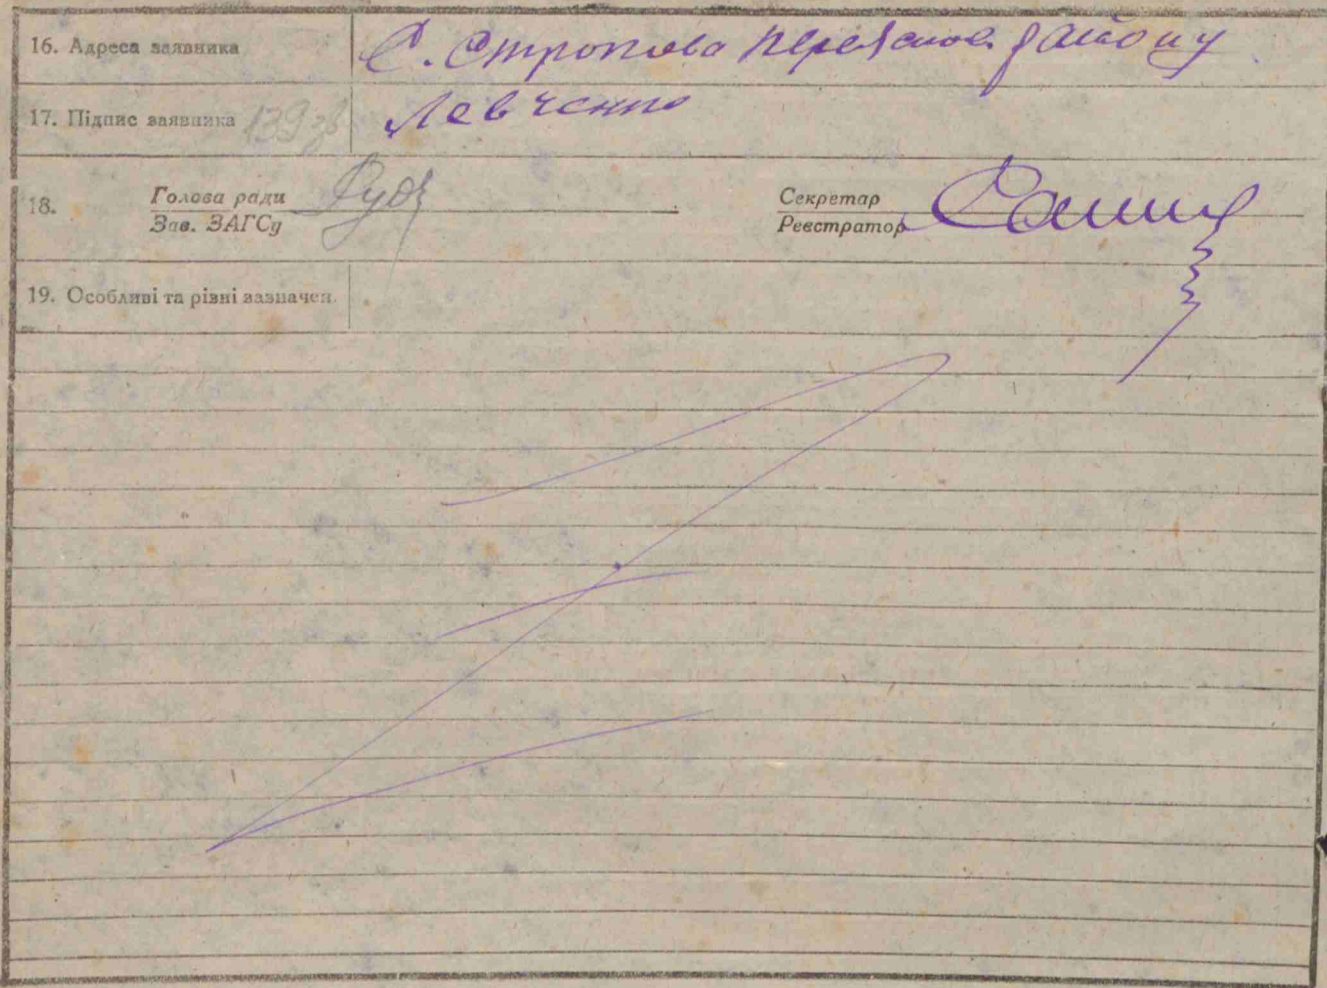 16. Адреса заявника С. Строкова Переяслов. району
17. Підпис заявника 139 зв Левченко
18. Голова ради Секретар
Зав. ЗАГСу Реєстратор
19. Особливі та різні зазначен.